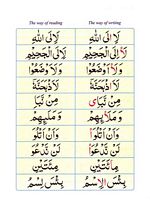 The way of reading The way of writing
لَاِلَى اللهِ لَاِالَى اللهِ
لَاِلَى الْجَحِيْمِ لَا اِلَى الْجَحِيْمِ
وَلَاَوْضَعُوْا وَلَا اَوْضَعُوْا
لَاَذْبَحَنَّهٗ لَا اَذْبَحَنَّهٗ
مِنْ نَّبَإِ مِنْ نَّبَاِی
وَمَلَئِهِمْ وَمَلَا۟ئِهِمْ
وَاَنْ اَتْلُوَ وَاَنْ اَتْلُوَا
لَنْ نَّدْعُوَ لَنْ نَّدْعُوَا
مِئَتَيْنِ مِائَتَيْنِ
بِئْسَ لِسْمُ بِئْسَ الِاسْمُ